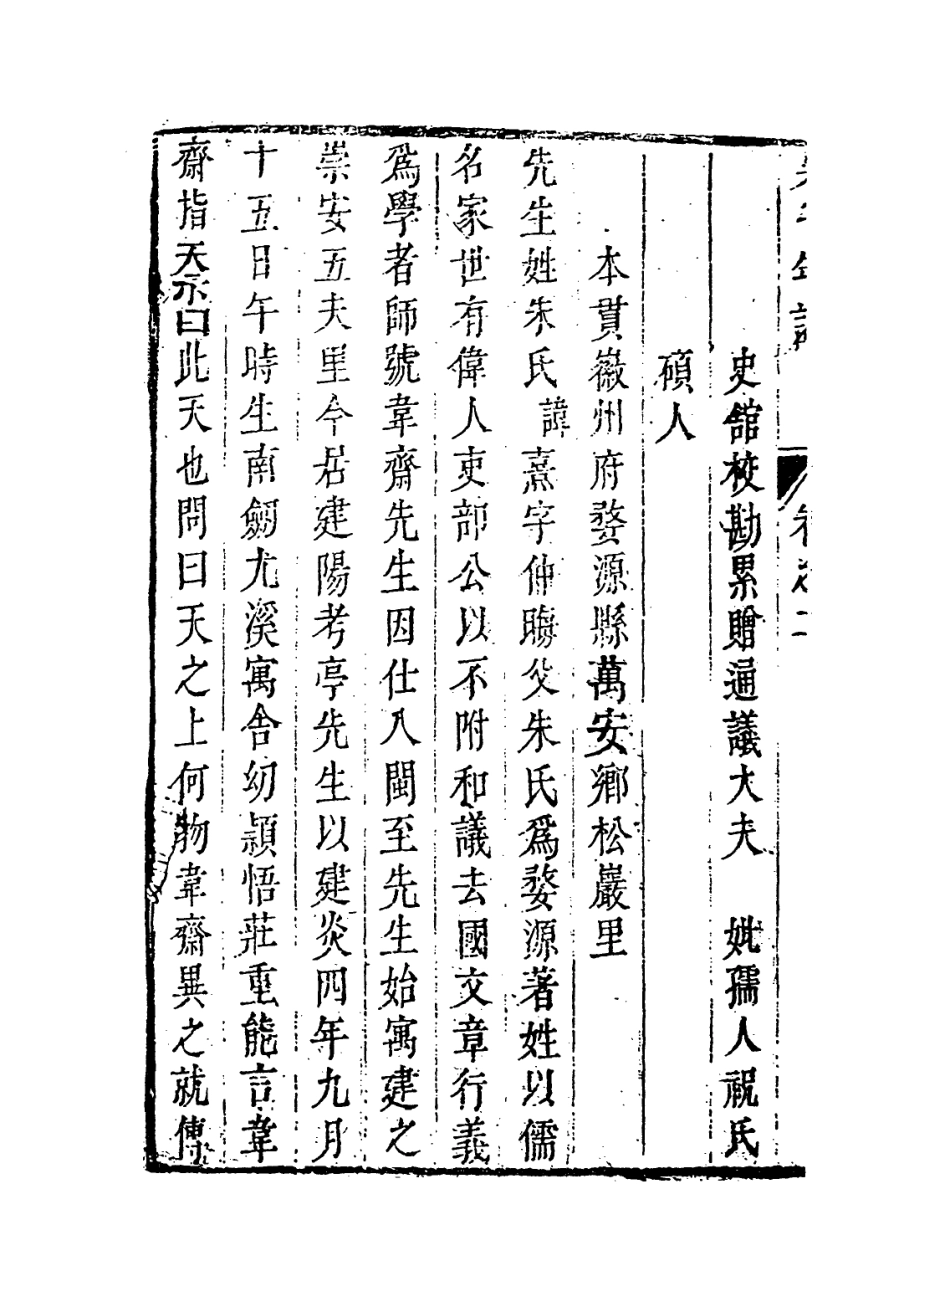 史館校勘累贈通議大夫　妣孺人祝氏
碩人
本貫徽州府婺源縣萬安鄉松巖里
先生姓朱氏諱熹字仲晦父朱氏爲婺源著姓以儒
名家世有偉人吏部公以不附和議去國文章行義
爲學者師號韋齋先生因仕入閩至先生始寓建之
崇安五夫里今居建陽考亭先生以建炎四年九月
十五日午時生南劒尤溪寓舍幼穎悟莊重能言韋
齋指天示曰此天也問曰天之上何物韋齋異之就傅